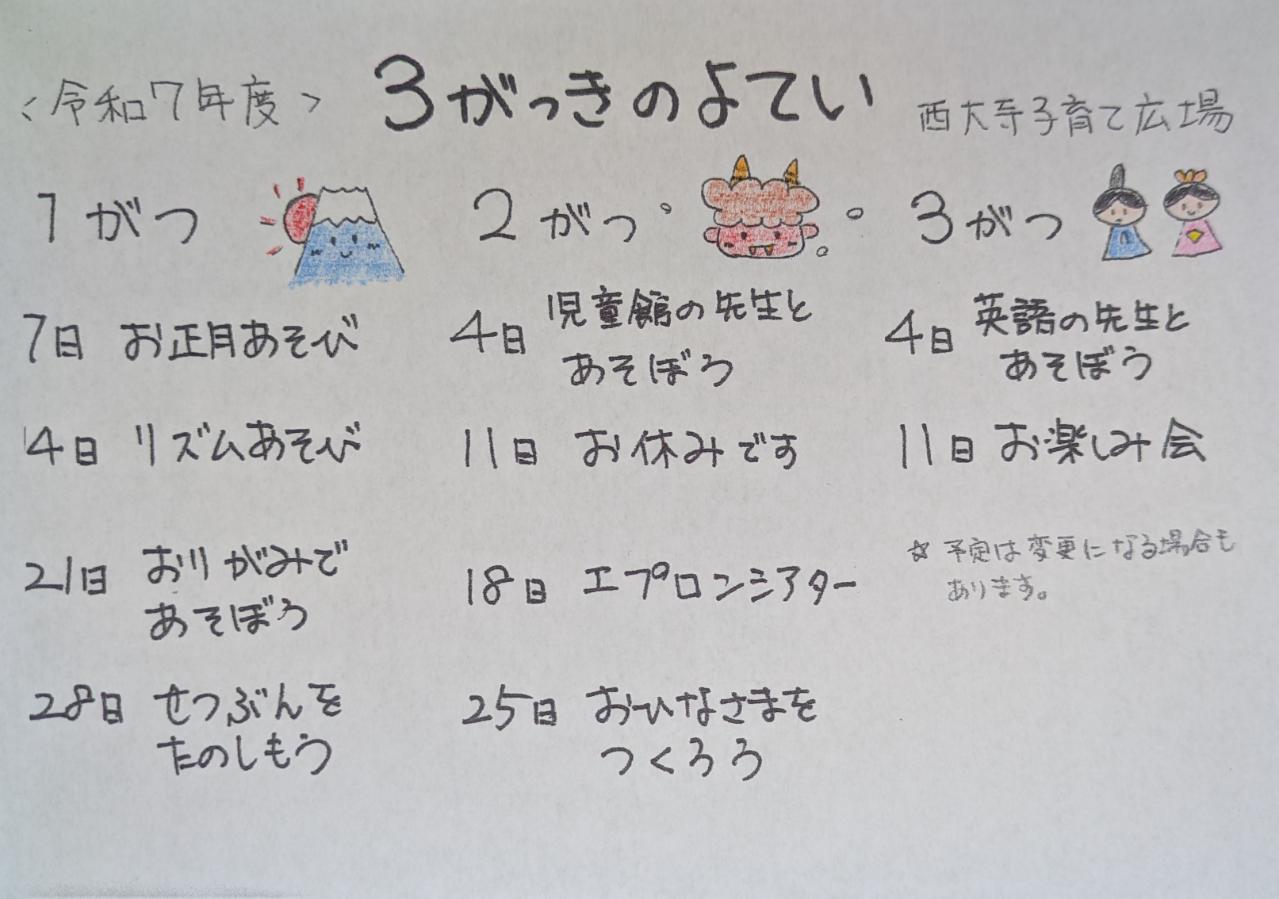 <令和7年度> 3がっきのよてい 西大寺子育て広場
1がつ
7日 お正月あそび
14日 リズムあそび
21日 おりがみで
あそぼう
28日 せつぶんを
たのしもう
2がつ
4日 児童館の先生と
あそぼう
11日 お休みです
18日 エプロンシアター
25日 おひなさまを
つくろう
3がつ
4日 英語の先生と
あそぼう
11日 お楽しみ会
☆ 予定は変更になる場合も
あります。